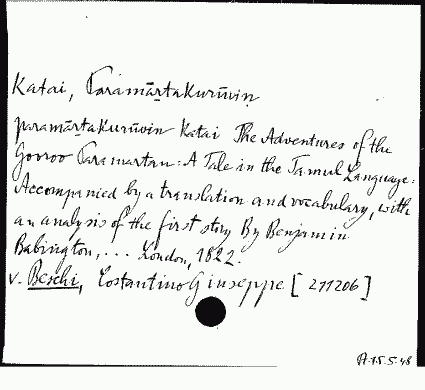 Katai, Paramārtakuruviṉ
paramārtakuruviṉ Katai The Adventures of the
Gooroo Paramartan: A Tale in the Tamul Language:
Accompanied by a translation and vocabulary, with
an analysis of the first story By Benjamin
Babington, ... London, 1822.
v. Beschi, Costantino Giuseppe [271206]
A.15.5.48